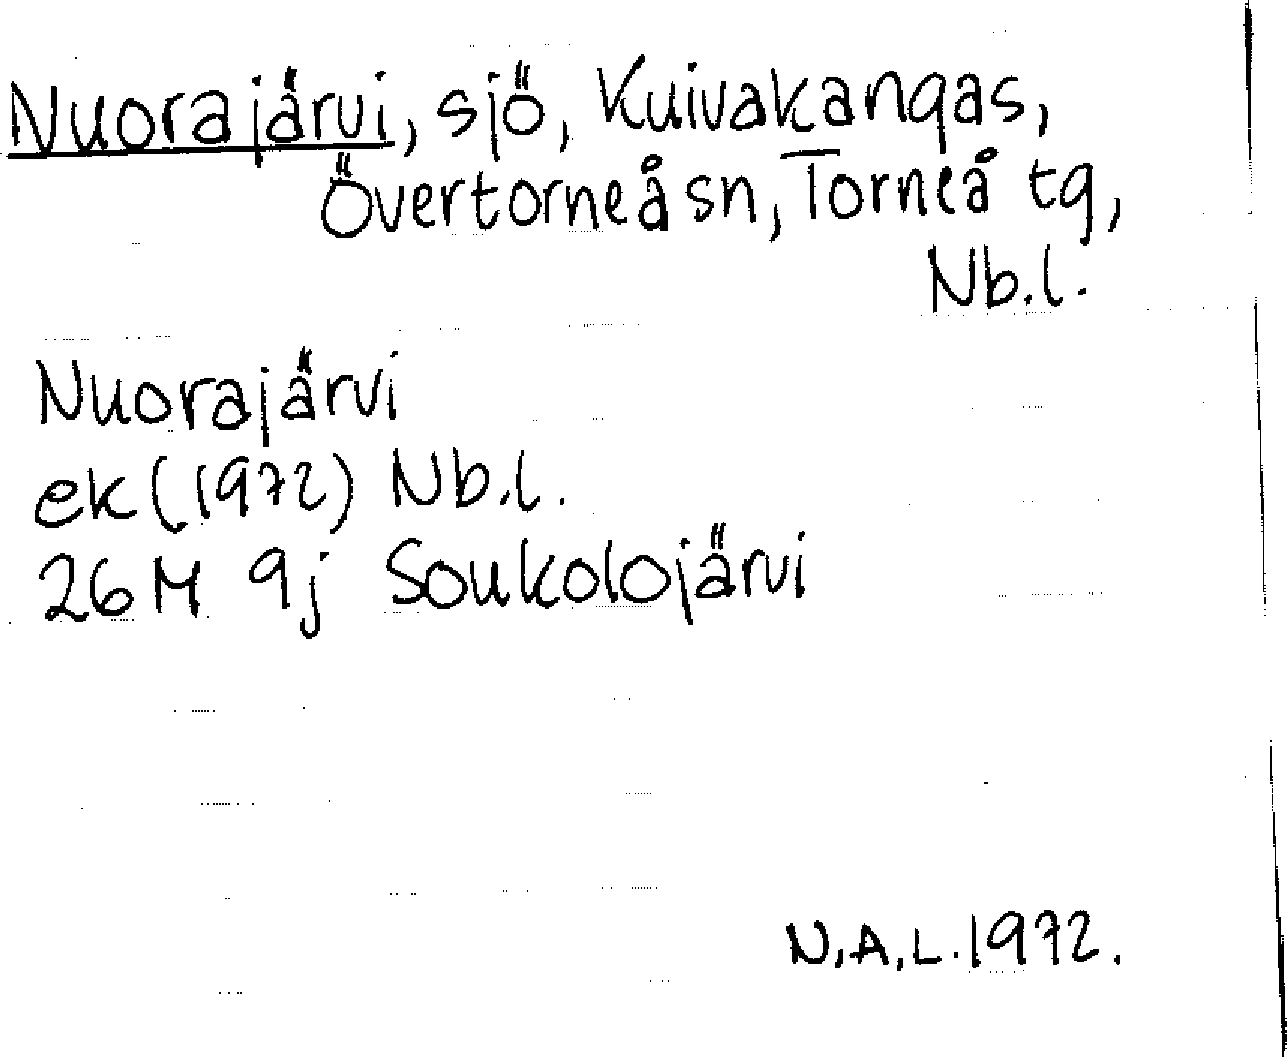 Nuorajärvi, sjö, Kuivakangas,
Övertorneå sn, Torneå tg,
Nb.l.
Nuorajärvi
ek (1972) Nb.l.
26 M 9j Soukolojärvi
N.A.L. 1972.